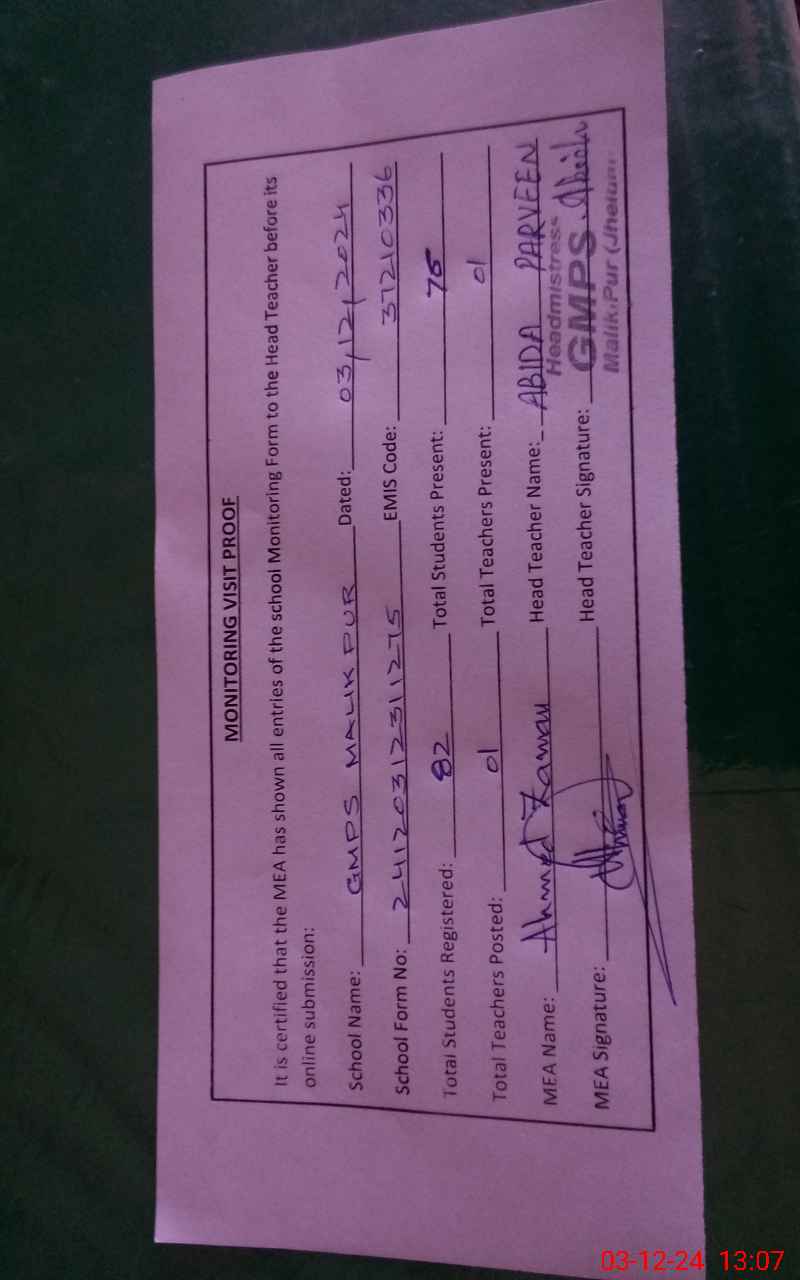 MONITORING VISIT PROOF
It is certified that the MEA has shown all entries of the school Monitoring Form to the Head Teacher before its
online submission:
School Name: GMPS MALIK PUR Dated: 03/12/2024
School Form No: 24120312311275 EMIS Code: 37210336
Total Students Registered: 82 Total Students Present: 75
Total Teachers Posted: 01 Total Teachers Present: 01
MEA Name: Ahmed Zaman Head Teacher Name: ABIDA PARVEEN
Headmistress
MEA Signature: Head Teacher Signature: Abida
GMPS
Malik Pur (Jhelum)
03-12-24 13:07